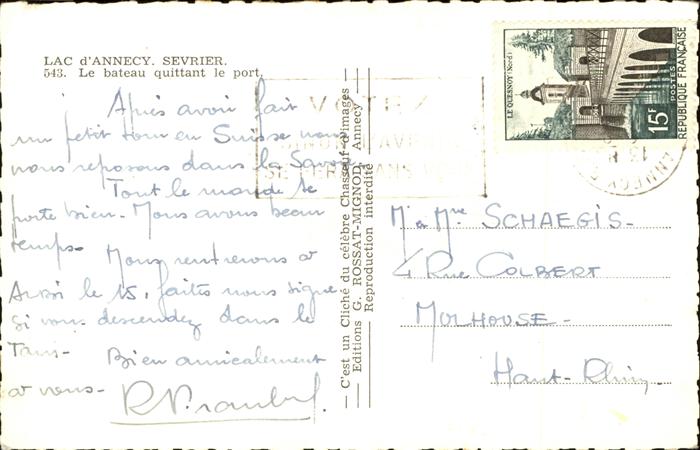 LAC d'ANNECY. SEVRIER.
543. Le bateau quittant le port.
Après avoir fait
un petit tour en Suisse nous
nous reposons dans la Savoie
Tout le monde se
porte bien. Nous avons beau
temps. Nous rentrerons
le 15. faites nous signe
si vous descendez dans le
Tarn. Bien amicalement
a vous.
— C'est un Cliché du célèbre Chasseur d'images —
— Editions G. ROSSAT-MIGNOD, Annecy —
Reproduction interdite
VOTEZ
LE QUESNOY (Nord)
15F
POSTES
REPUBLIQUE FRANÇAISE
ANNECY
Mr & Mme SCHAEGIS-
4 Rue COLBERT
MULHOUSE-
Haut-Rhin